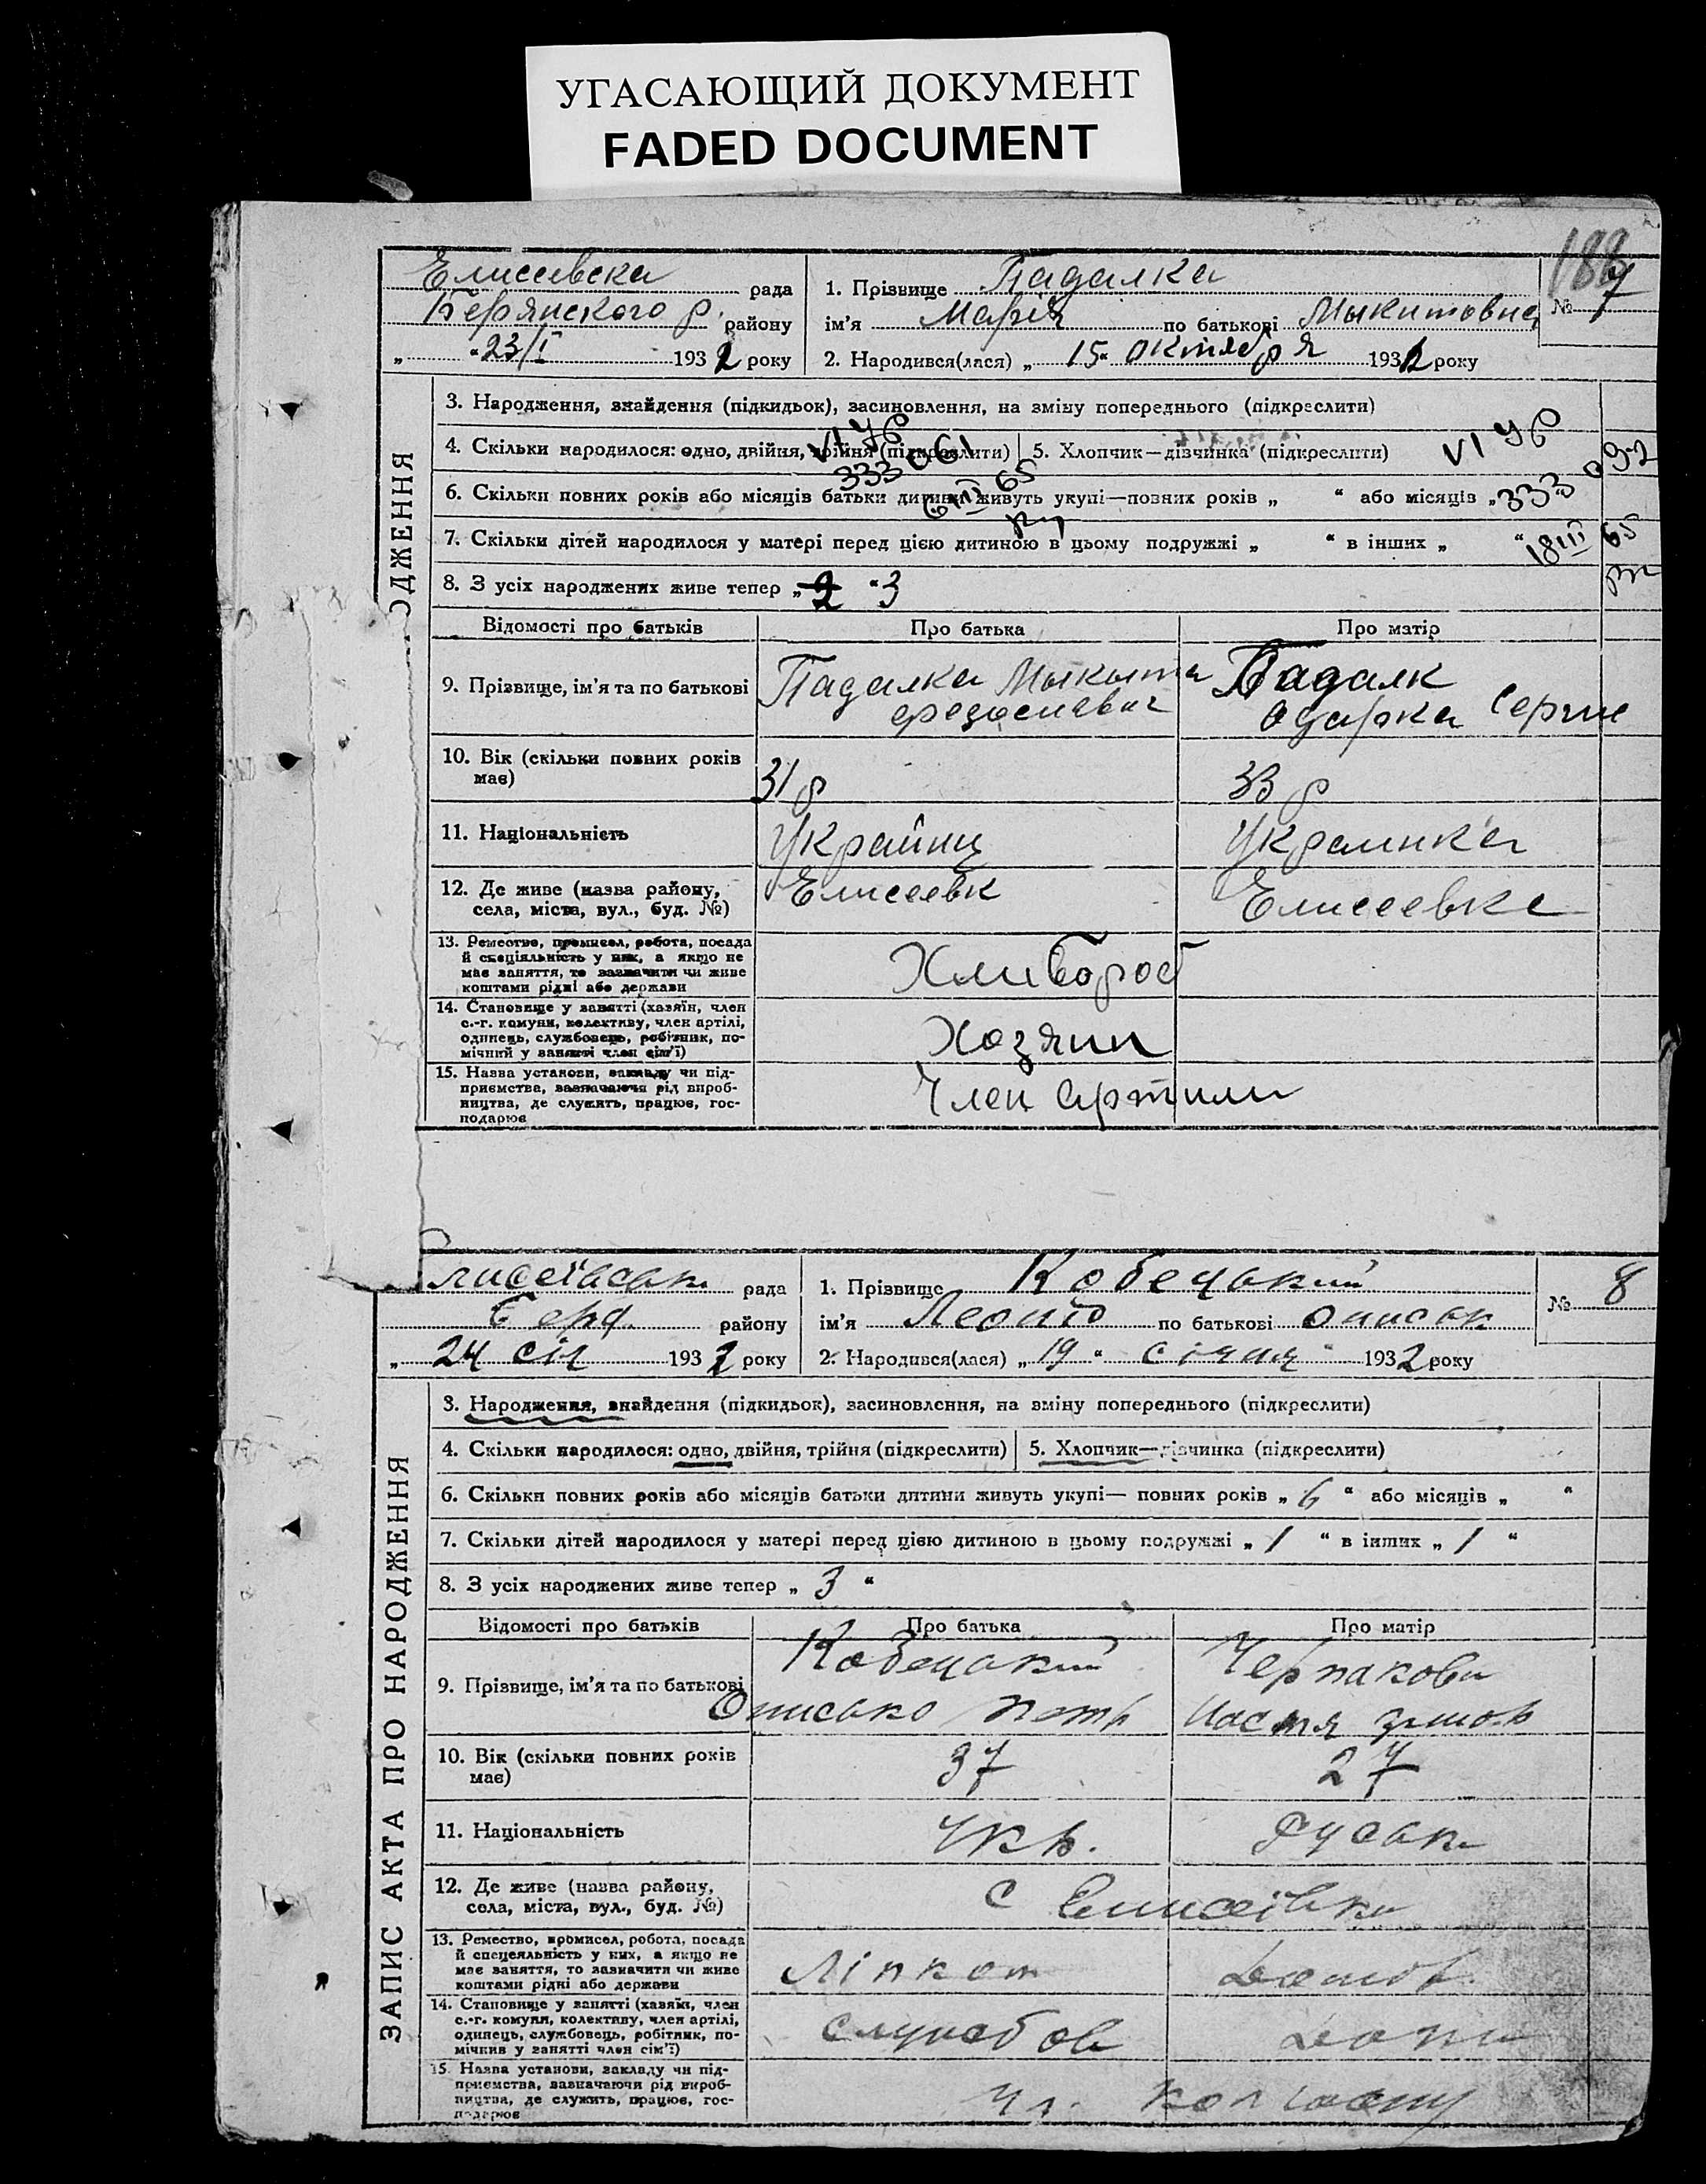 УГАСАЮЩИЙ ДОКУМЕНТ
FADED DOCUMENT
188
Елисевска рада
района
„ “ 23/I 1932 року
1. Прізвище Падалка
ім'я Марія по батькові Мыкитовна
2. Народився(лася) „15“ октября 193 року
№ 7
ОДЖЕННЯ
3. Народження, знайдення (підкидьок), засиновлення, на зміну попереднього (підкреслити)
4. Скільки народилося: одно, двійня, трійня (підкреслити) 5. Хлопчик—дівчинка (підкреслити)
VI УР
333
VI УР
333
6. Скільки повних років або місяців батьки дитини живуть укупі—повних років „ “ або місяців „ “
7. Скільки дітей народилося у матері перед цією дитиною в цьому подружжі „ “ в інших „ “
18 III 65
8. З усіх народжених живе тепер „2“ 3
Відомості про батьків Про батька Про матір
9. Прізвище, ім'я та по батькові Падалка Мыкыта Падалк
Одарка Сергие
10. Вік (скільки повних років має) 31 р 33 р
11. Національність Украйнц Украинка
12. Де живе (назва району, села, міста, вул., буд. №) Елисеевк Елисеевке
13. Ремество, промисел, робота, посада
й спеціяльність у них, а якщо не
має заняття, то зазначити чи живе
коштами рідні або держави
Хлибороб
14. Становище у занятті (хазяїн, член
с.-г. комуни, колективу, член артілі,
одинець, службовець, робітник, по-
мічний у занятті член сім'ї)
Хозяин
15. Назва установи, закладу чи під-
приємства, зазначаючи рід вироб-
ництва, де служить, працює, гос-
подарює
Член Артили
лисеївськ рада
Берд. району
„ 24 січ 1932 року
1. Прізвище Кобецький
ім'я Леонід по батькові Описьк
2. Народився(лася) „19“ січня 1932 року
№ 8
ЗАПИС АКТА ПРО НАРОДЖЕННЯ
3. Народження, знайдення (підкидьок), засиновлення, на зміну попереднього (підкреслити)
4. Скільки народилося: одно, двійня, трійня (підкреслити) 5. Хлопчик—дівчинка (підкреслити)
6. Скільки повних років або місяців батьки дитини живуть укупі— повних років „6“ або місяців „ “
7. Скільки дітей народилося у матері перед цією дитиною в цьому подружжі „1“ в інших „1“
8. З усіх народжених живе тепер „3“
Відомості про батьків Про батька Про матір
9. Прізвище, ім'я та по батькові Кобецький Черпакова
Описько Петр Настя
10. Вік (скільки повних років має) 37 27
11. Національність Укр. Руськ
12. Де живе (назва району, села, міста, вул., буд. №) с Єлисеївка
13. Ремество, промисел, робота, посада
й спецеяльність у них, а якщо не
має заняття, то зазначити чи живе
коштами рідні або держави
Лікпом
14. Становище у занятті (хазяїн, член
с.-г. комуни, колективу, член артілі,
одинець, службовець, робітник, по-
мічник у занятті член сім'ї)
службов
15. Назва установи, закладу чи під-
приємства, зазначаючи рід вироб-
ництва, де служить, працює, гос-
подарює
Чл. колгоспу